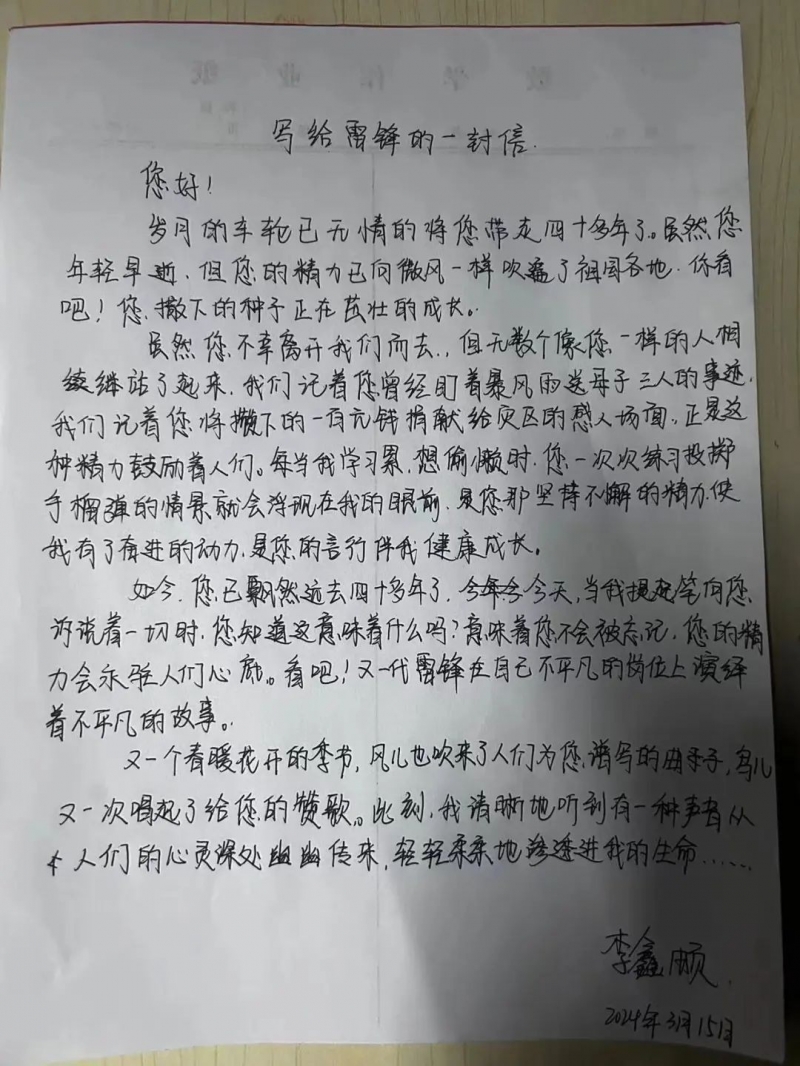 写给雷锋的一封信.
您好!
岁月的车轮已无情的将您带走四十多年了。虽然您
年轻早逝,但您的精力已向微风一样吹遍了祖国各地.你看
吧!您撒下的种子正在茁壮的成长。
虽然您不幸离开我们而去.,但无数个像您一样的人相
续继站了起来,我们记着您曾经盯着暴风雨送母子三人的事迹,
我们记着您将攒下的一百元钱捐献给灾区的感人场面,正是这
种精力鼓励着人们。每当我学习累,想偷懒时.您一次次练习投掷
手榴弹的情景就会浮现在我的眼前.是您那坚持不懈的精力.使
我有了奋进的动力,是您的言行伴我健康成长。
如今.您已飘然远去四十多年了.今天,当我提起笔向您
诉说着一切时.您知道这意味着什么吗?意味着您不会被忘记,您的精
力会永驻人们心底。看吧!又一代雷锋在自己不平凡的岗位上演绎
着不平凡的故事。
又一个春暖花开的季节,风儿也吹来了人们为您谱写的曲子,鸟儿
又一次唱起了给您的赞歌。此刻,我清晰地听到有一种声音从
人们的心灵深处幽幽传来,轻轻柔柔地渗透进我的生命……
李鑫顺
2024年3月15日